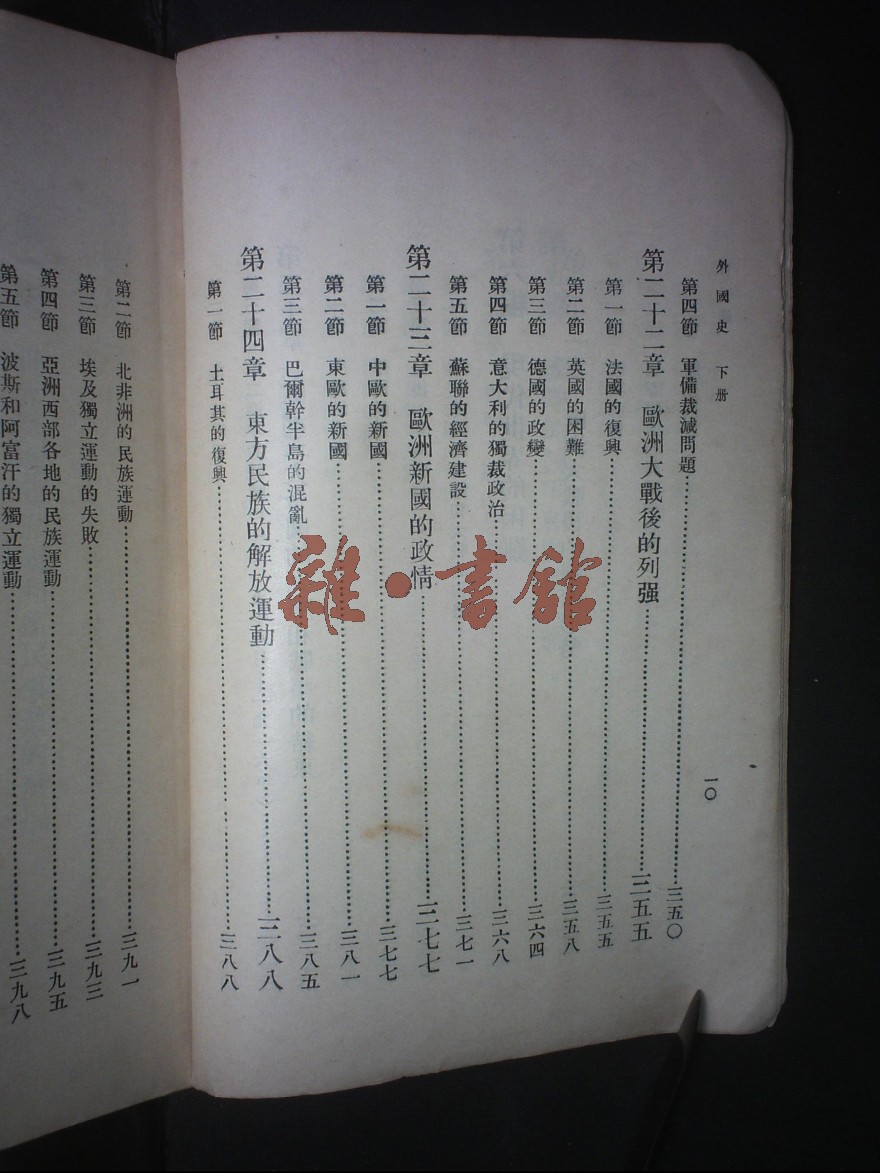 外國史 下册
一〇
第四節 軍備裁減問題……三五〇
第二十二章 歐洲大戰後的列强……三五五
第一節 法國的復興……三五五
第二節 英國的困難……三五八
第三節 德國的政變……三六四
第四節 意大利的獨裁政治……三六八
第五節 蘇聯的經濟建設……三七一
第二十三章 歐洲新國的政情……三七七
第一節 中歐的新國……三七七
第二節 東歐的新國……三八一
第三節 巴爾幹半島的混亂……三八五
第二十四章 東方民族的解放運動……三八八
第一節 土耳其的復興……三八八
第二節 北非洲的民族運動……三九一
第三節 埃及獨立運動的失敗……三九三
第四節 亞洲西部各地的民族運動……三九五
第五節 波斯和阿富汗的獨立運動……三九八
雜·書館